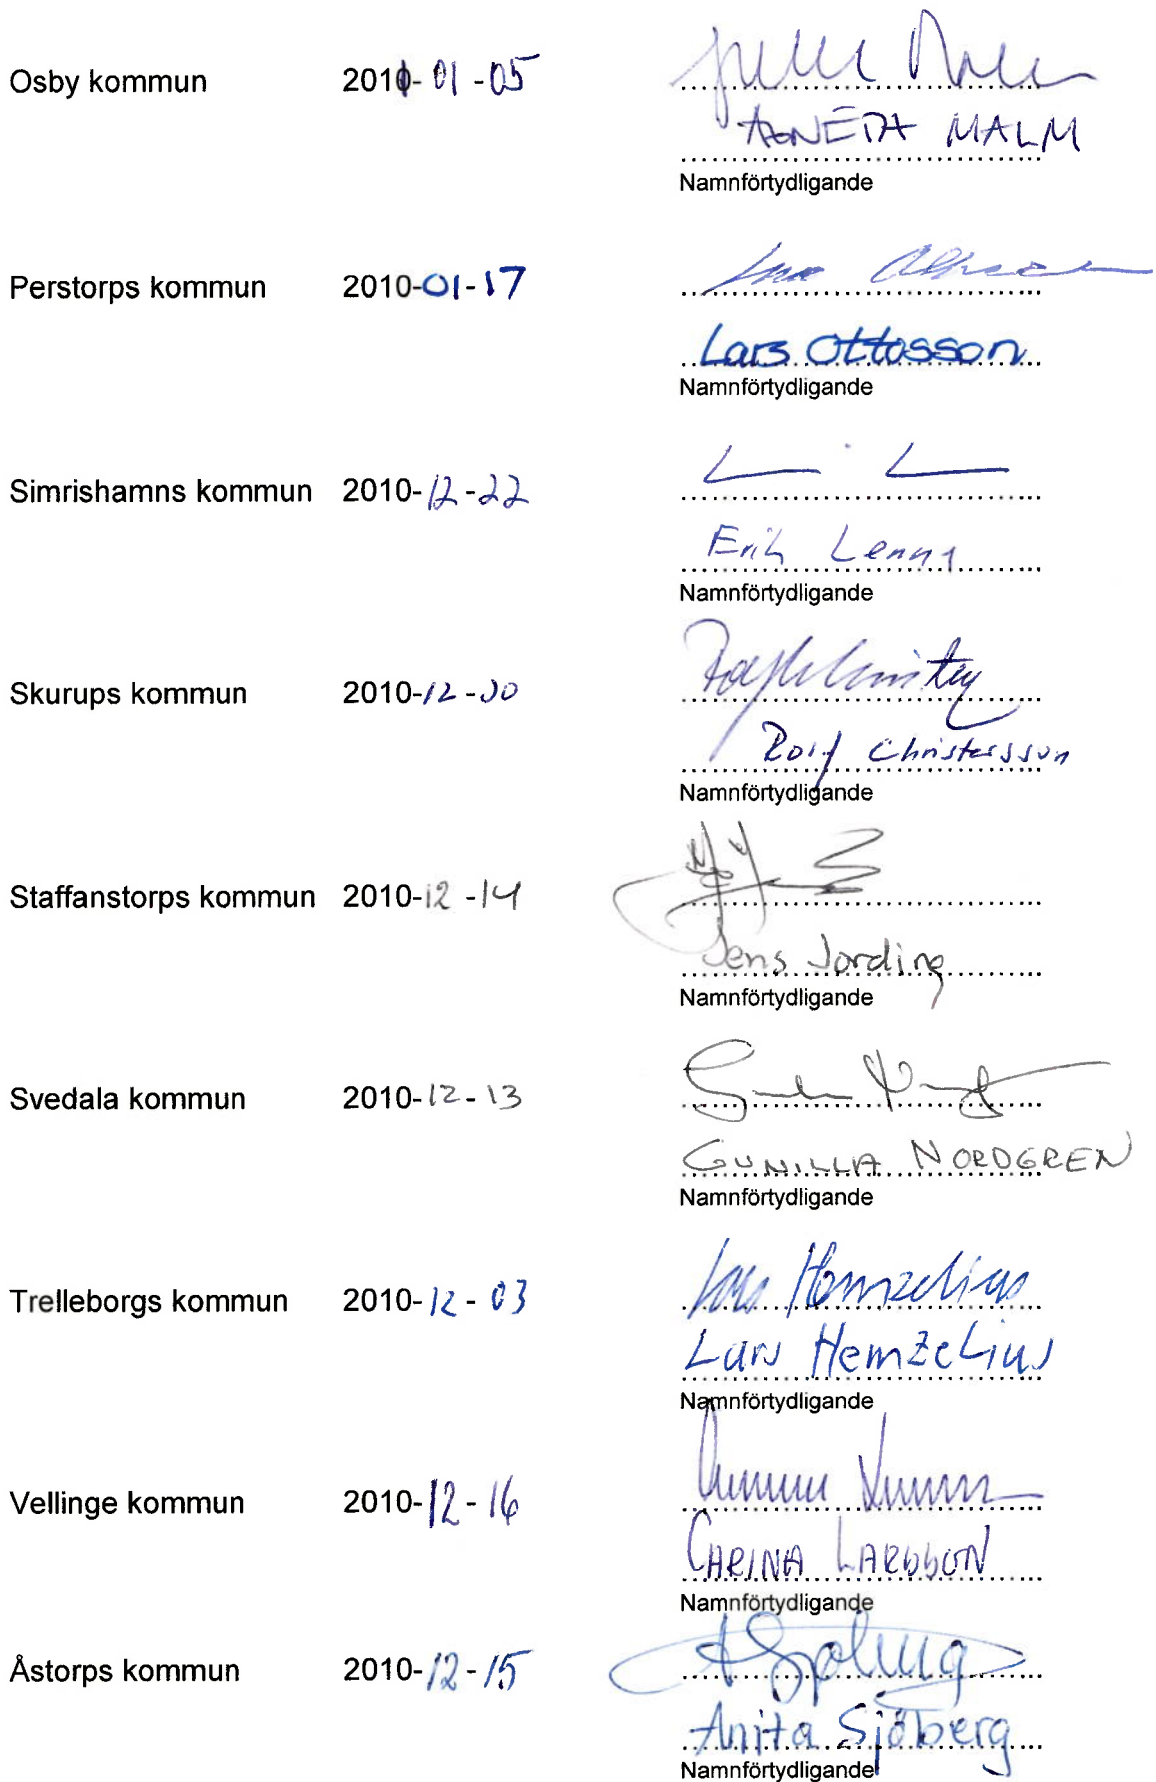 Osby kommun 2011-01-05
AGNETA MALM
Namnförtydligande
Perstorps kommun 2010-01-17
Lars Ottosson
Namnförtydligande
Simrishamns kommun 2010-12-22
Erik Lenny
Namnförtydligande
Skurups kommun 2010-12-20
Rolf Christersson
Namnförtydligande
Staffanstorps kommun 2010-12-14
Jens Jording
Namnförtydligande
Svedala kommun 2010-12-13
GUNILLA NORDGREN
Namnförtydligande
Trelleborgs kommun 2010-12-03
Lars Hemzelius
Lars Hemzelius
Namnförtydligande
Vellinge kommun 2010-12-16
CARINA LARSSON
Namnförtydligande
Åstorps kommun 2010-12-15
Anita Sjöberg
Namnförtydligande